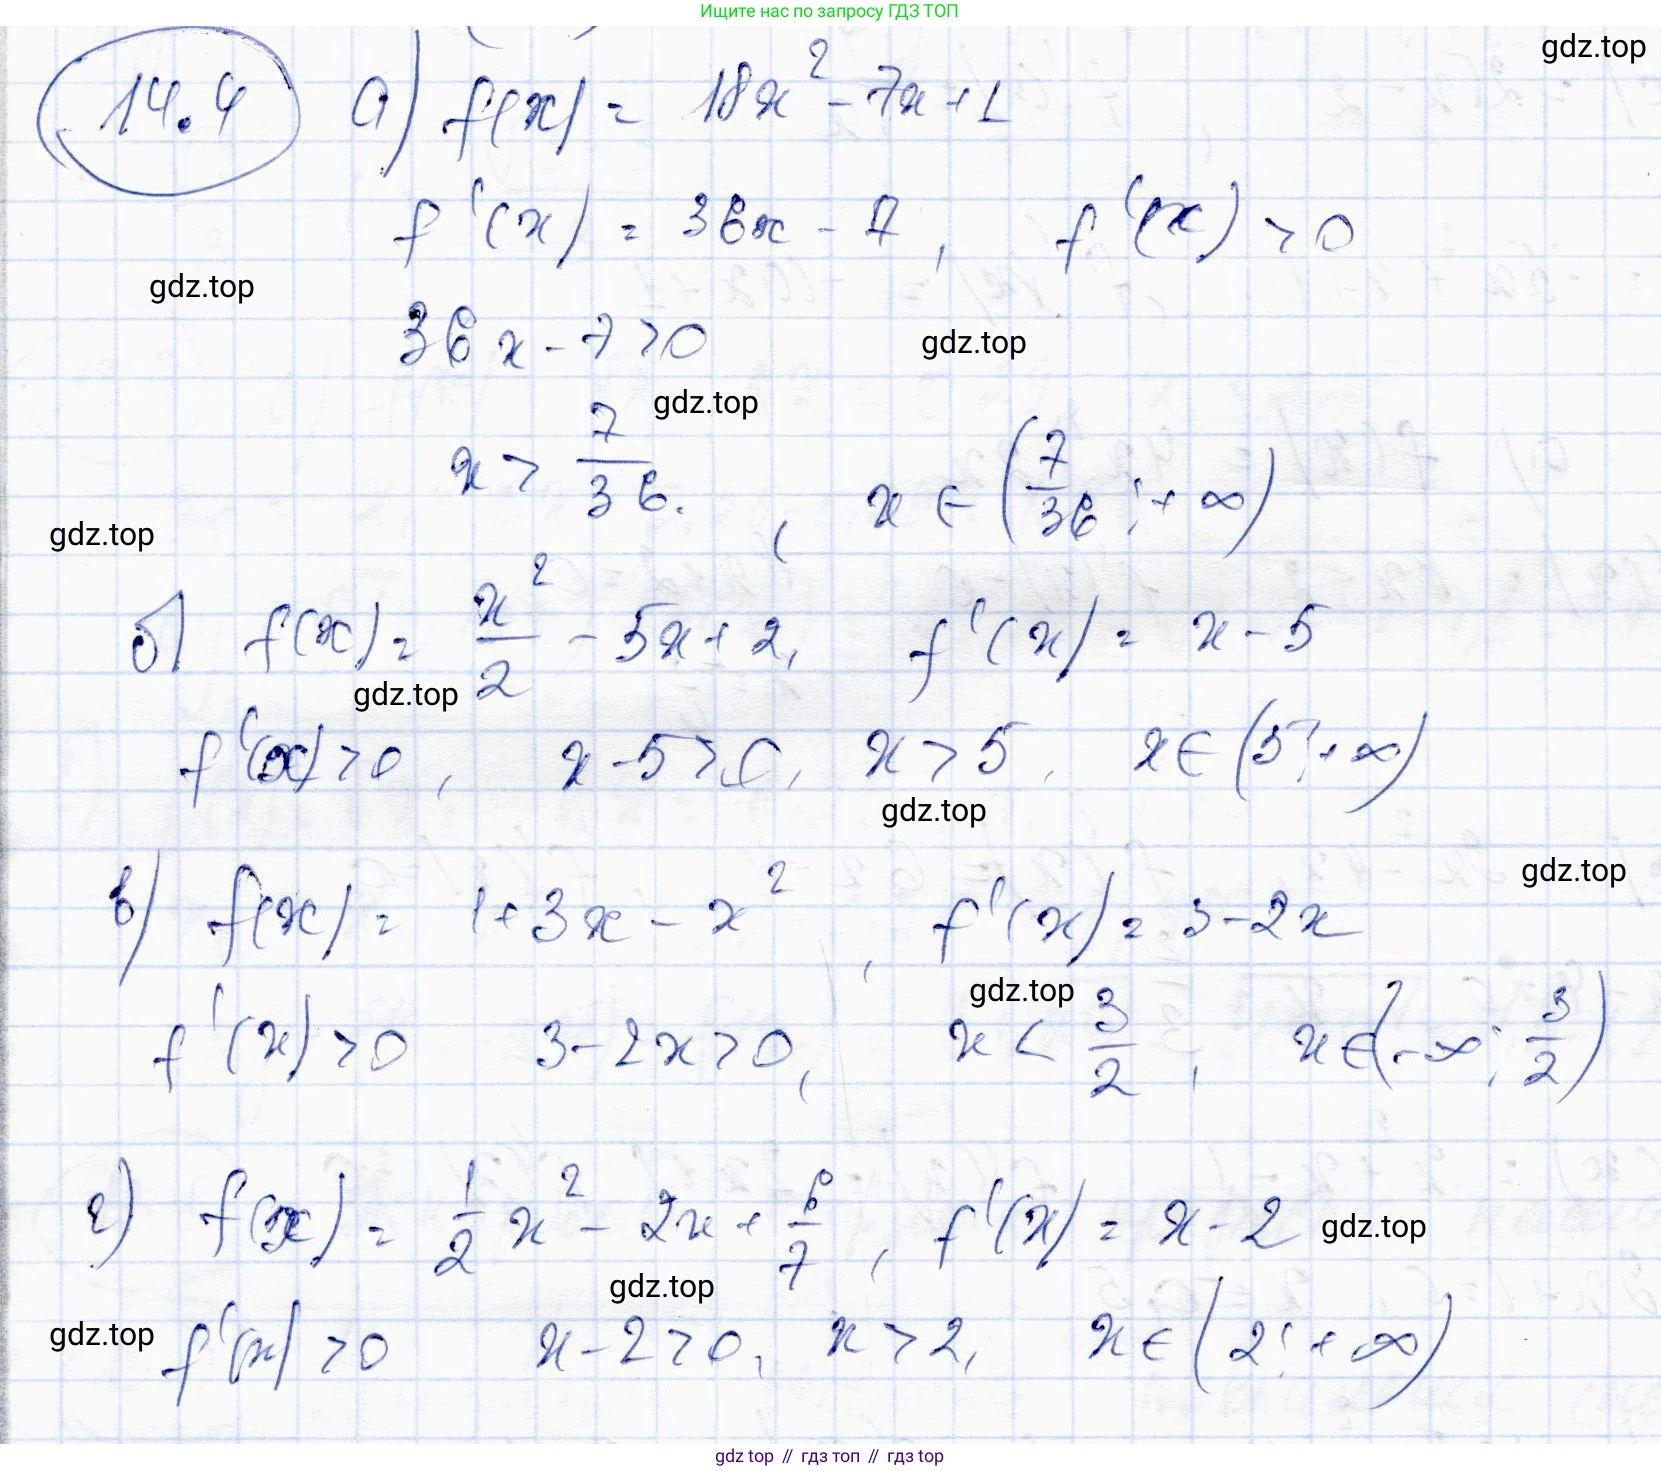 Ищите нас по запросу ГДЗ ТОП
gdz.top
14.4 а) f(x) = 18x² - 7x + 1
f'(x) = 36x - 7, f'(x) > 0
gdz.top
36x - 7 > 0
gdz.top
gdz.top
x > 7/36, x ∈ (7/36; +∞)
gdz.top
б) f(x) = x²/2 - 5x + 2, f'(x) = x - 5
gdz.top
f'(x) > 0, x - 5 > 0, x > 5, x ∈ (5; +∞)
gdz.top
gdz.top
в) f(x) = 1 + 3x - x², f'(x) = 3 - 2x
gdz.top
f'(x) > 0 3 - 2x > 0, x < 3/2, x ∈ (-∞; 3/2)
г) f(x) = 1/2 x² - 2x + 6/7, f'(x) = x - 2
gdz.top
gdz.top
gdz.top
f'(x) > 0 x - 2 > 0, x > 2, x ∈ (2; +∞)
gdz top // гдз топ // гдз top